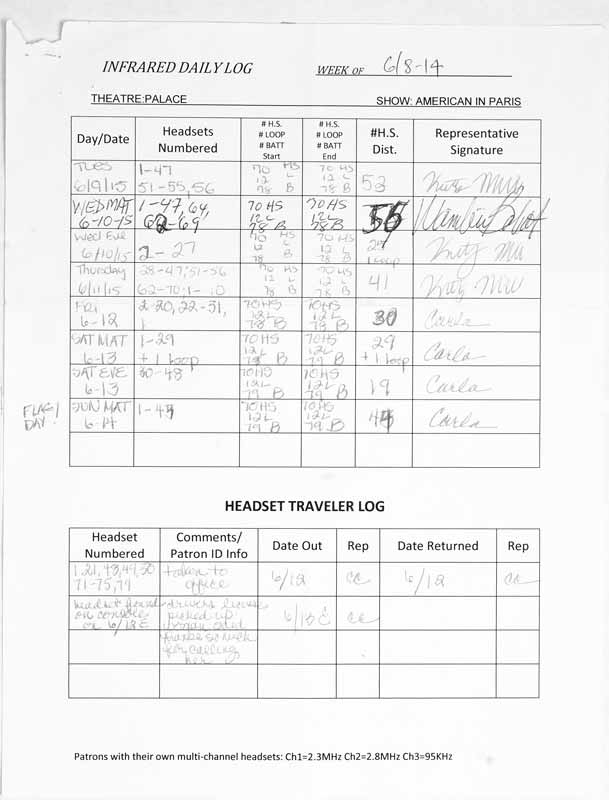 INFRARED DAILY LOG WEEK OF 6/8-14
THEATRE: PALACE SHOW: AMERICAN IN PARIS
Day/Date Headsets Numbered # H.S. # LOOP # BATT Start # H.S. # LOOP # BATT End #H.S. Dist. Representative Signature
TUES 6/9/15 1-47 51-55,56 70 HS 12 L 78 B 70 HS 12 L 78 B 53
WED MAT 6-10-15 1-47,64, 62-69 70 HS 12 L 78 B 70 HS 12 L 78 B
Wed Eve 6/10/15 2-27 70 HS 12 L 78 B 70 HS 12 L 78 B 27 1 loop
Thursday 6/11/15 28-47; 51-56 62-70; 1-10 70 HS 12 L 78 B 70 HS 12 L 78 B 41
FRI 6-12 2-20, 22-31, 70 HS 12 L 78 B 70 HS 12 L 78 B 30 Carla
SAT MAT 6-13 1-29 + 1 loop 70 HS 12 L 79 B 70 HS 12 L 79 B 29 + 1 loop Carla
SAT EVE 6-13 30-48 70 HS 12 L 79 B 70 HS 12 L 79 B 19 Carla
FLAG DAY! SUN MAT 6-14 70 HS 12 L 79 B 70 HS 12 L 79 B Carla
HEADSET TRAVELER LOG
Headset Numbered Comments/ Patron ID Info Date Out Rep Date Returned Rep
1,21,48,49,50 71-75,79 taken to office 6/12 cc 6/12 cc
headset found on console on 6/13 E drivers license picked up thanks so much for calling her 6/13 E cc
Patrons with their own multi-channel headsets: Ch1=2.3MHz Ch2=2.8MHz Ch3=95KHz